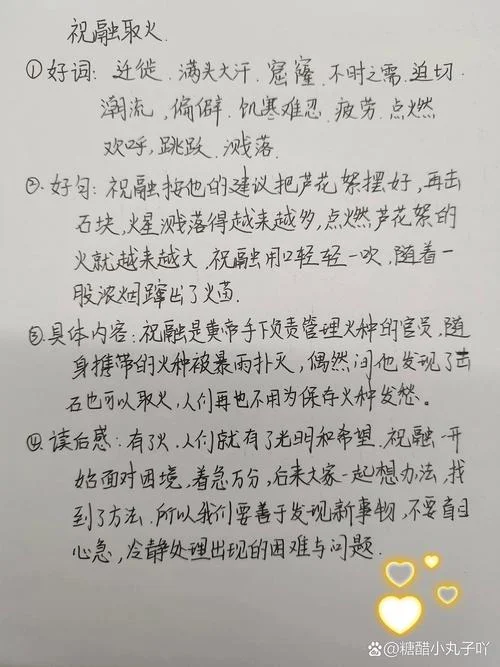 祝融取火.
①好词: 迁徙. 满头大汗. 窟窿. 不时之需. 迫切.
潮流, 偏僻. 饥寒难忍. 疲劳. 点燃
欢呼, 跳跃. 溅落.
②好句: 祝融按他的建议把芦花絮摆好, 再击
石块, 火星溅落得越来越多, 点燃芦花絮的
火就越来越大, 祝融用口轻轻一吹, 随着一
股浓烟蹿出了火苗.
③具体内容: 祝融是黄帝手下负责管理火种的官员, 随
身携带的火种被暴雨扑灭, 偶然间他发现了击
石也可以取火, 人们再也不用为保存火种发愁。
④读后感: 有了火. 人们就有了光明和希望. 祝融一开
始面对困境, 着急万分, 后来大家一起想办法, 找
到了方法. 所以我们要善于发现新事物, 不要盲目
心急, 冷静处理出现的困难与问题.
百家号/糖醋小丸子吖